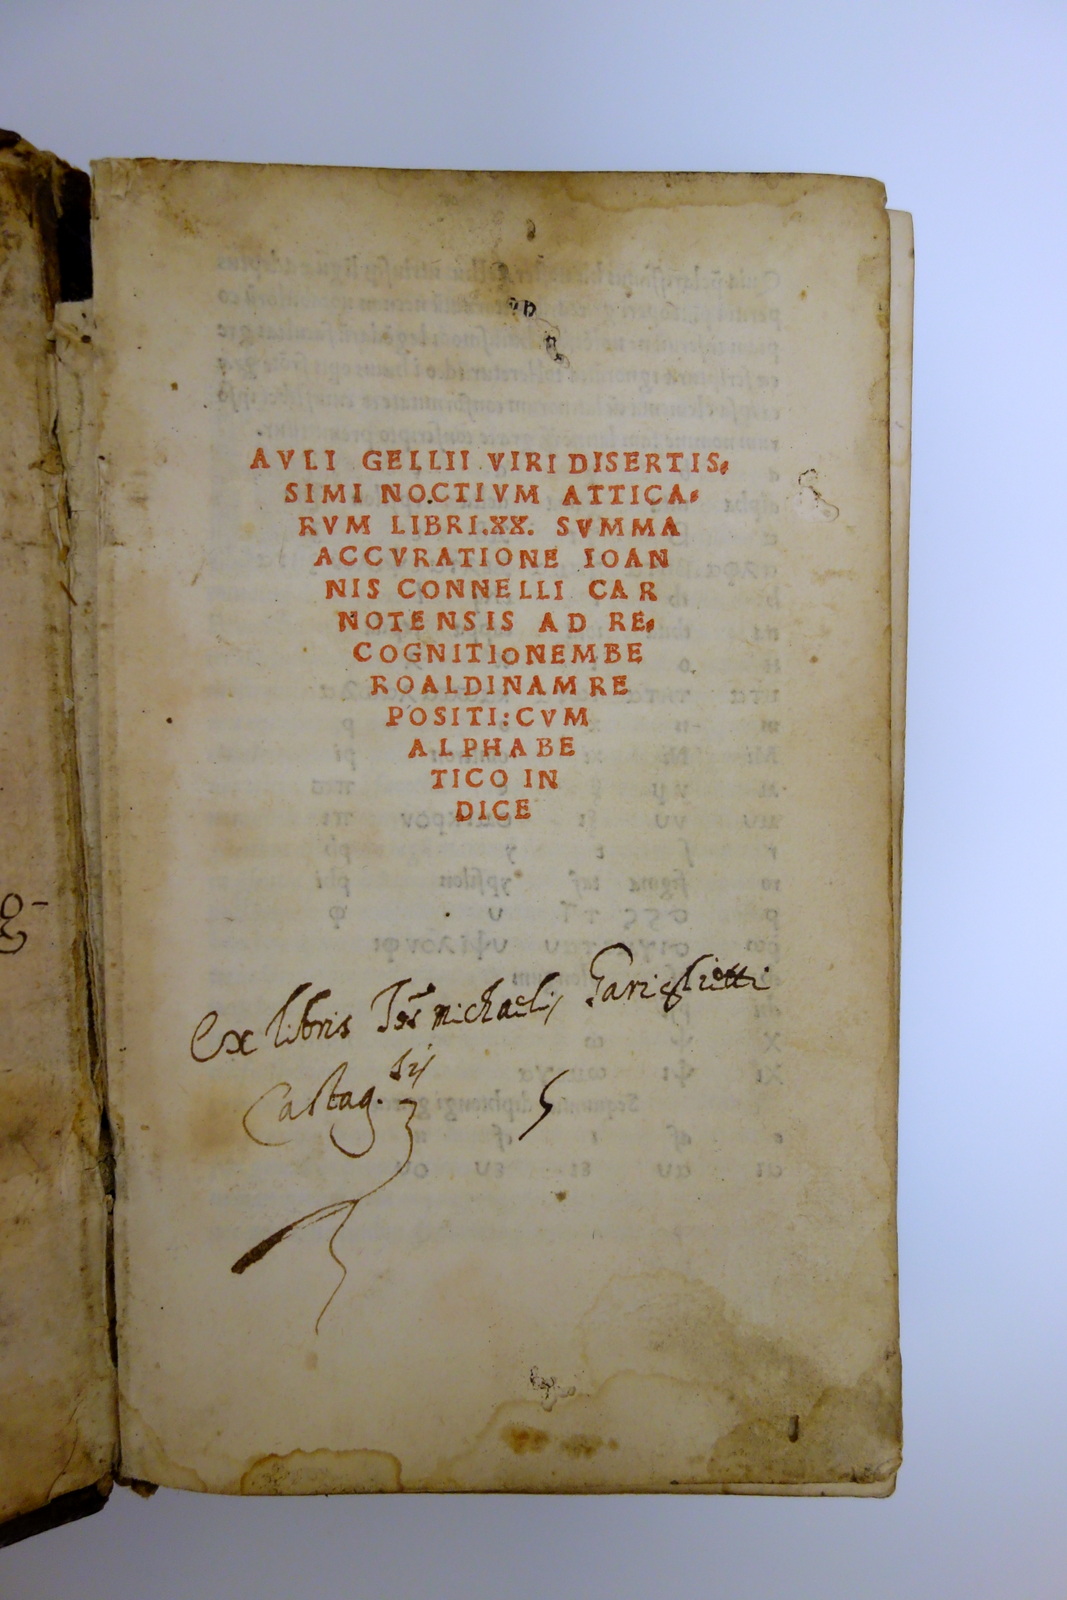 AVLI GELLII VIRI DISERTIS⸗
SIMI NOCTIVM ATTICA⸗
RVM LIBRI.XX. SVMMA
ACCVRATIONE IOAN
NIS CONNELLI CAR
NOTENSIS AD RE⸗
COGNITIONEMBE
ROALDINAMRE
POSITI:CVM
ALPHABE
TICO IN
DICE
ex libris michaelis
Castag.